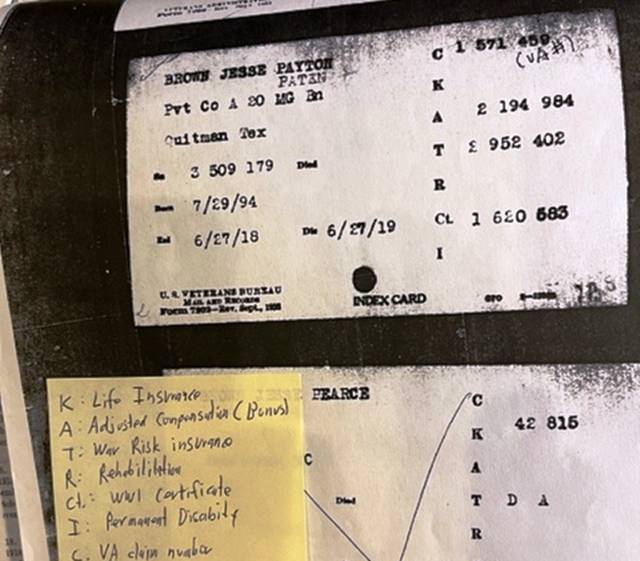 BROWN JESSE PAYTON
PATEN
Pvt Co A 20 MG Bn
Quitman Tex
No 3 509 179 Died
Born 7/29/94
Enl 6/27/18 Dis 6/27/19
U. S. VETERANS BUREAU
MAIL AND RECORDS
Form 7202—Rev. Sept., 1925
INDEX CARD
GPO
C 1 571 459
(VA#)
K
A 2 194 984
T 2 952 402
R
Ct. 1 620 583
I
K: Life Insurance
A: Adjusted Compensation (Bonus)
T: War Risk insurance
R: Rehabilitation
Ct.: WWI Certificate
I: Permanent Disability
C: VA claim number
PEARCE
C
Died
C
K 42 815
A
T D A
R